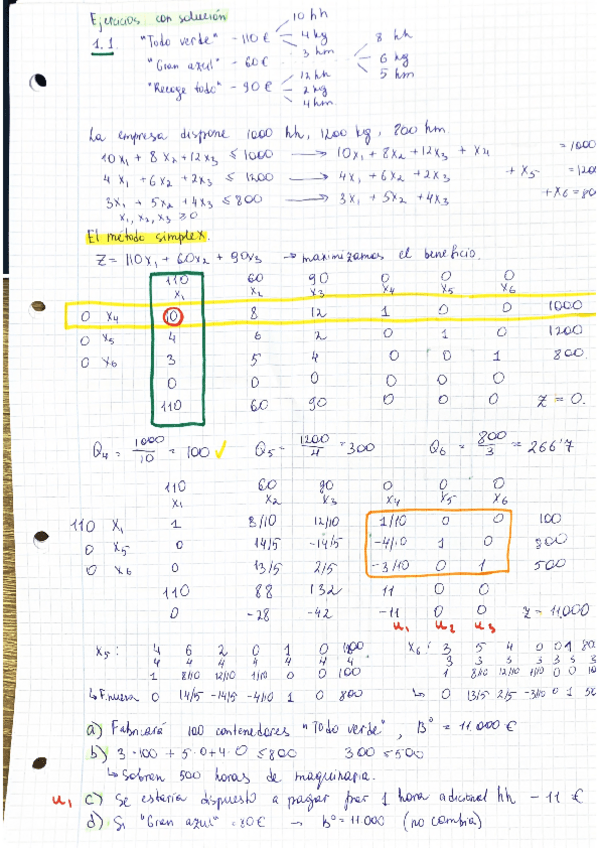 Ejercicios con solución
1.1. "Todo verde" - 110€ 10 hh 4 kg 3 hm
"Gran azul" - 60€ 8 hh 6 kg 5 hm
"Recoge todo" - 90€ 12 hh 2 kg 4 hm
La empresa dispone 1000 hh, 1200 kg, 800 hm.
10x₁ + 8x₂ + 12x₃ ≤ 1000 → 10x₁ + 8x₂ + 12x₃ + x₄ = 1000
4x₁ + 6x₂ + 2x₃ ≤ 1200 → 4x₁ + 6x₂ + 2x₃ + x₅ = 120
3x₁ + 5x₂ + 4x₃ ≤ 800 → 3x₁ + 5x₂ + 4x₃ + x₆ = 80
x₁, x₂, x₃ ≥ 0
El método simplex.
Z = 110x₁ + 60x₂ + 90x₃ → maximizamos el beneficio.
110 60 90 0 0 0
x₁ x₂ x₃ x₄ x₅ x₆
0 x₄ 10 8 12 1 0 0 1000
0 x₅ 4 6 2 0 1 0 1200
0 x₆ 3 5 4 0 0 1 800.
0 0 0 0 0 0
110 60 90 0 0 0 Z = 0.
Q₄ = 1000/10 = 100 ✓ Q₅ = 1200/4 = 300 Q₆ = 800/3 = 266'7
110 60 90 0 0 0
x₁ x₂ x₃ x₄ x₅ x₆
110 x₁ 1 8/10 12/10 1/10 0 0 100
0 x₅ 0 14/5 -14/5 -4/10 1 0 800
0 x₆ 0 13/5 2/5 -3/10 0 1 500
110 88 132 11 0 0
0 -28 -42 -11 0 0 Z = 11.000
u₁ u₂ u₃
x₅: 4 6 2 0 1 0 x₆: 3 5 4 0 0 1 80
4 4 4 4 4 4 4 3 3 3 3 3 3 3
1 8/10 12/10 1/10 0 0 100 1 8/10 12/10 1/10 0 0 10
↳ F.nueva 0 14/5 -14/5 -4/10 1 0 800 ↳ 0 13/5 2/5 -3/10 0 1 50
a) Fabricará 100 contenedores "Todo verde", Bº = 11.000 €
b) 3·100 + 5·0 + 4·0 ≤ 800 300 ≤ 500
↳ Sobran 500 horas de maquinaria.
u₁ c) Se estaría dispuesto a pagar por 1 hora adicional hh - 11 €
d) Si "Gran azul" = 80€ → Bº = 11.000 (no cambia)